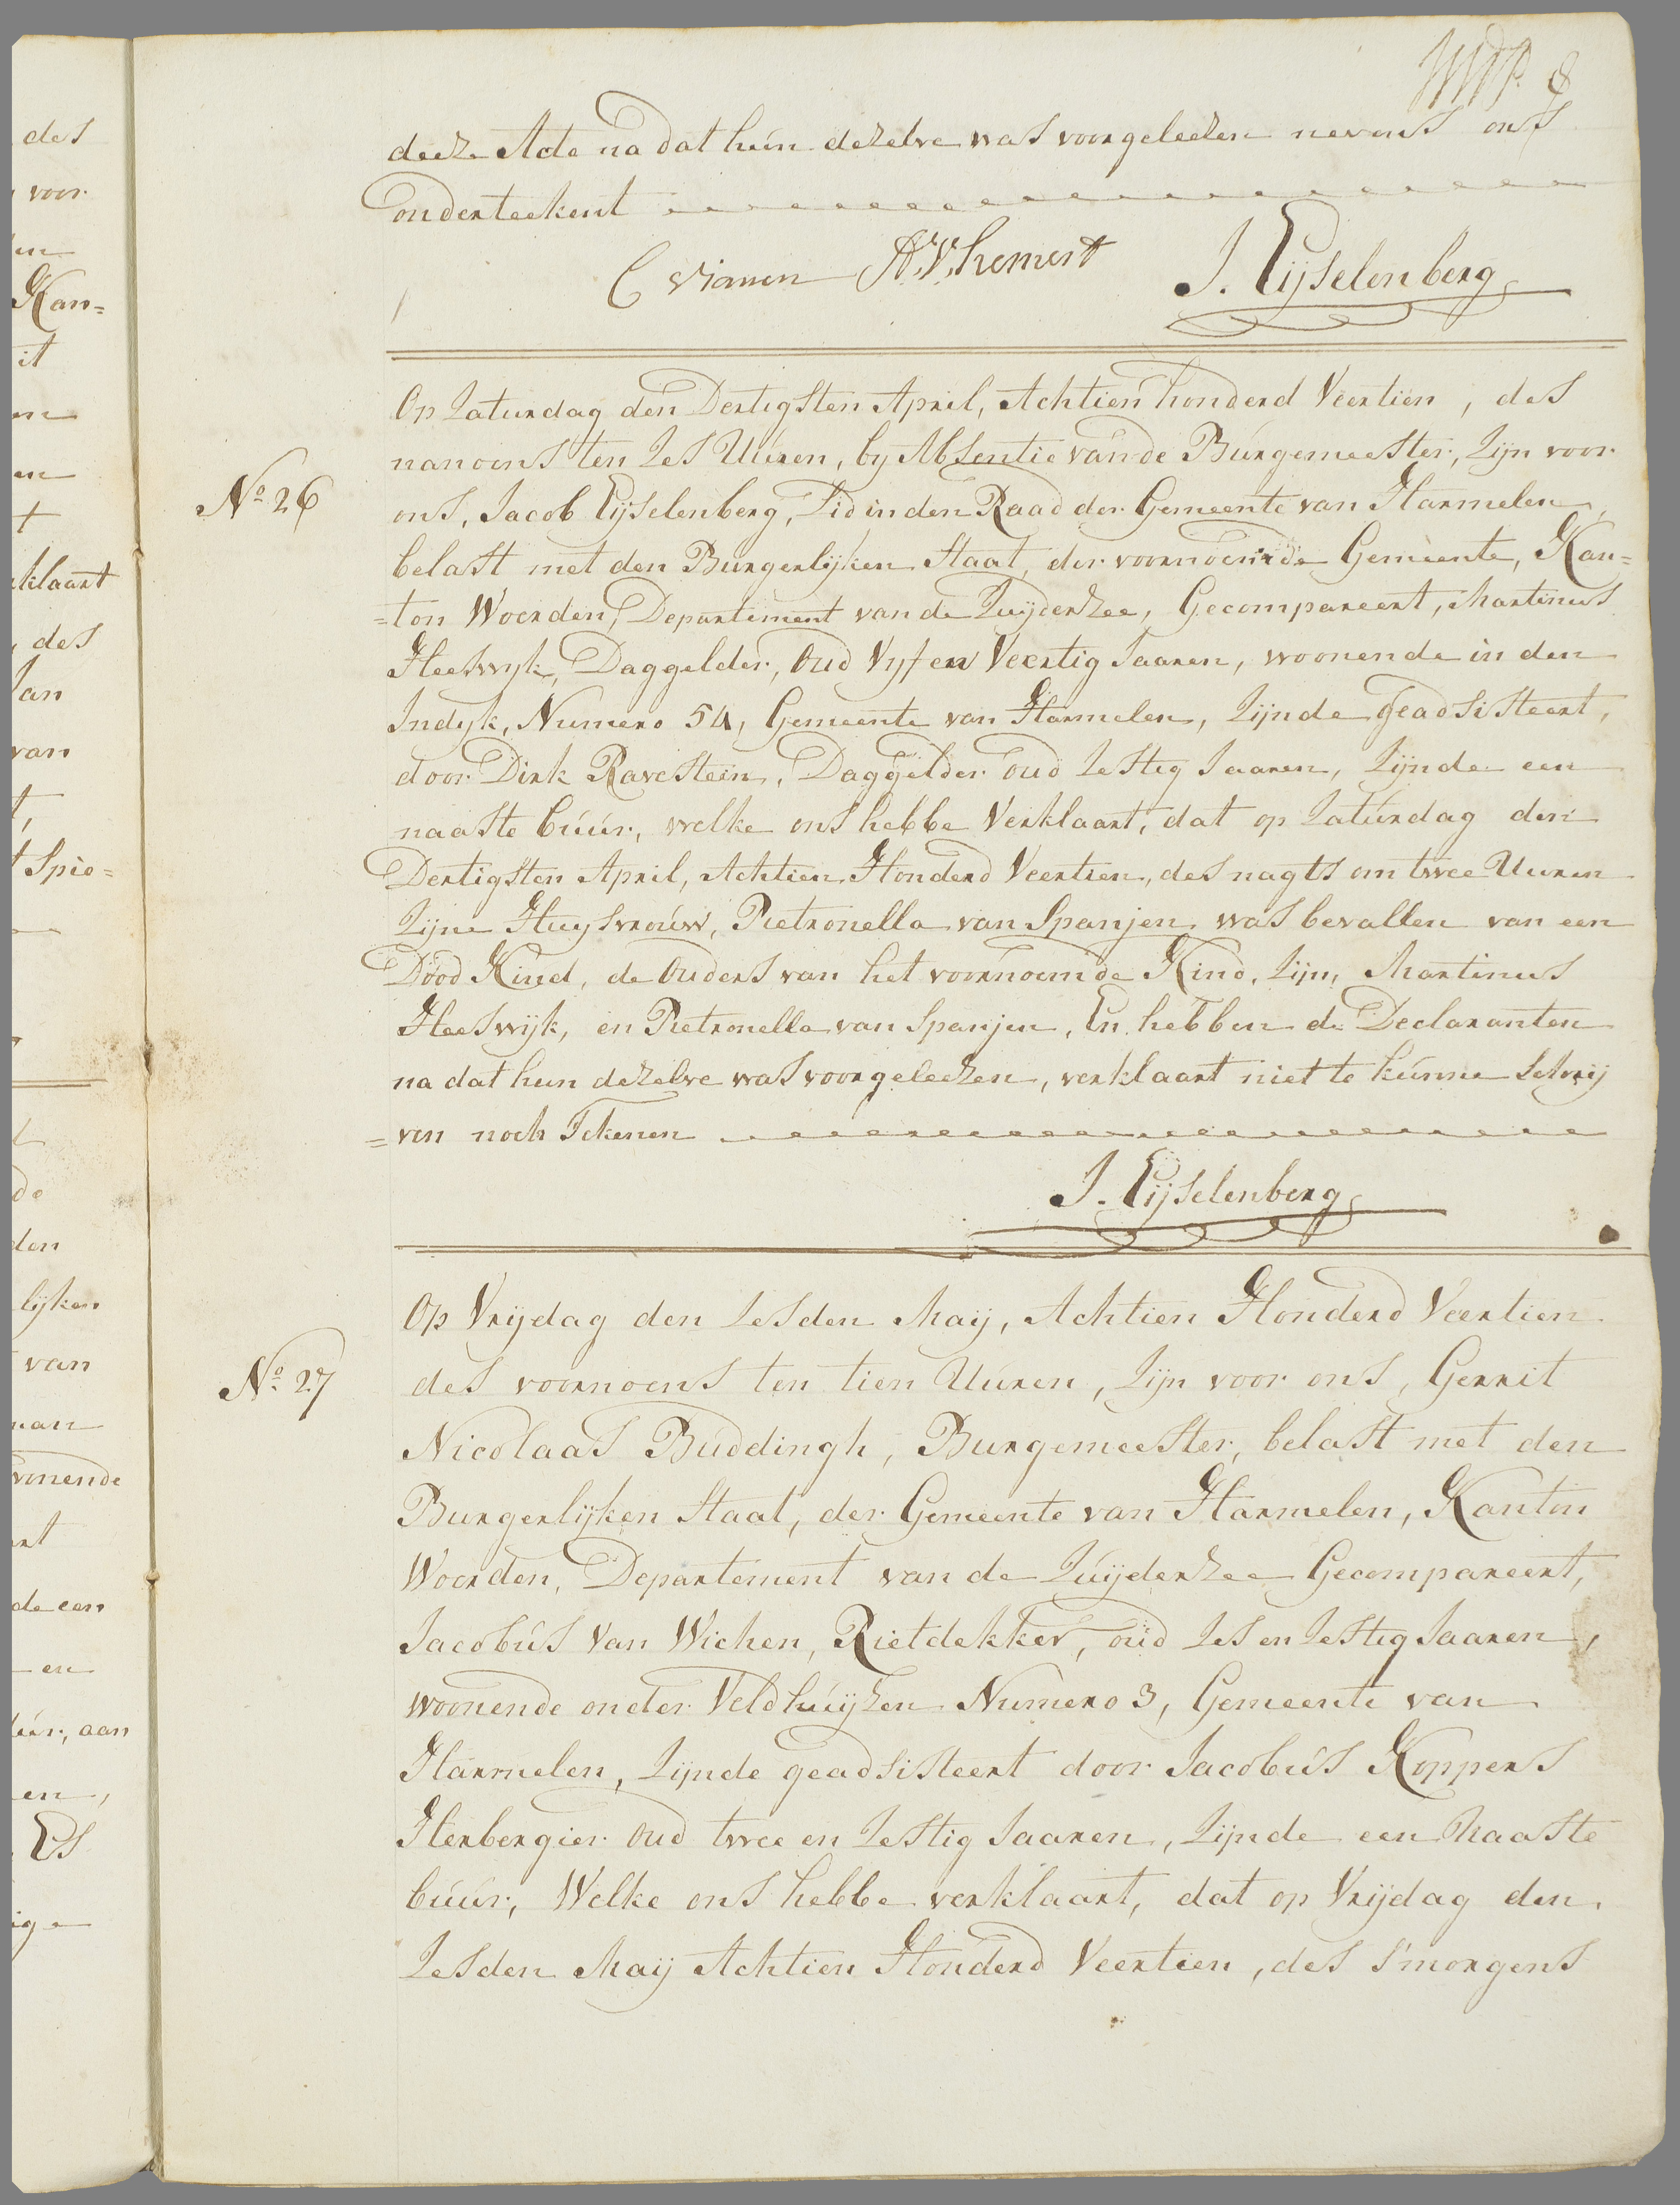 8
deeze Acte na dat hún dezelve was voorgeleezen nevens ons
onderteekent
C Vianen A. V. hemert J. Eijselenberg
Op Zaturdag den Dertigsten April, Achtien honderd Veertien, des
nanoens ten Zes Uúren, by Absentie van de Búrgemeester, Zijn voor
Nº 26
ons, Jacob Eijselenberg, Lid in den Raad der Gemeente van Harmelen,
belast met den Burgerlijken Staat, der voornoemde Gemeente, Kan=
=ton Woerden, Departiment van de Zuijderzee, Gecompareert, Martinus
Heeswyk, Daggelder, Oud Vyf en Veertig Jaaren, woonende in den
Indyk, Numero 54, Gemeente van Harmelen, Zijnde geadsisteert,
door Dirk Ravestein, Daggelder oud Zestig Jaaren, Zijnde een
naaste búúr, welke ons hebbe Verklaart, dat op Zatúrdag den
Dertigsten April, Achtien Honderd Veertien, des nagts om twee Uuren
Zijne Huysvroúw, Pietronella van Spanjen was bevallen van een
Dood Kind, de Ouders van het voornoemde Kind, Zijn, Martinus
Heeswijk, en Pietronella van Spanjen, En hebben de Declaranten
na dat hun dezelve was voorgeleezen, verklaart niet te kúnne Schrij
=ven noch Tekenen
J. Eijselenberg
Op Vrijdag den Zesden Maij, Achtien Honderd Veertien
Nº 27
des voornoens ten tien Uúren, Zijn voor ons, Gerrit
Nicolaas Buddingh, Burgemeester, belast met den
Burgerlijken Staat, der Gemeente van Harmelen, Kanton
Woerden, Departement van de Zuijderzee Gecompareert,
Jacobús Van Wichen, Rietdekker, oúd Zes en Zestig Jaaren,
woonende onder Veldhúijzen Numero 3, Gemeente van
Harmelen, Zijnde geadsisteert door Jacobús Koppers
Herbergier Oud twee en Zestig Jaaren, Zijnde een Naaste
búúr, Welke ons hebbe verklaart, dat op Vrijdag den
Zesden Maij Achtien Honderd Veertien, des s'morgens